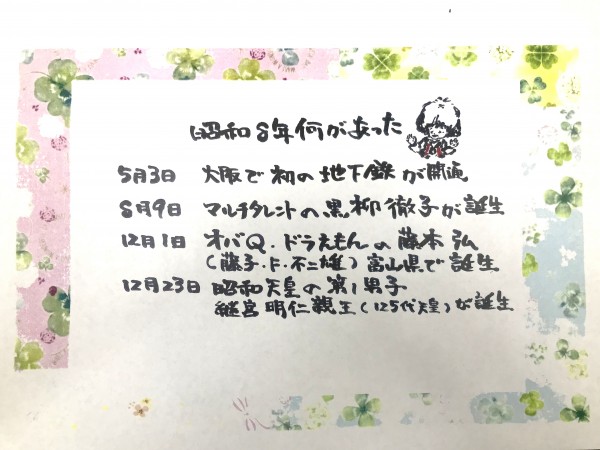 昭和8年何があった
5月3日 大阪で初の地下鉄が開通
8月9日 マルチタレントの黒柳徹子が誕生
12月1日 オバQ.ドラえもんの藤本弘
(藤子・F・不二雄)富山県で誕生
12月23日 昭和天皇の第1男子
継宮明仁親王(125代天皇)が誕生